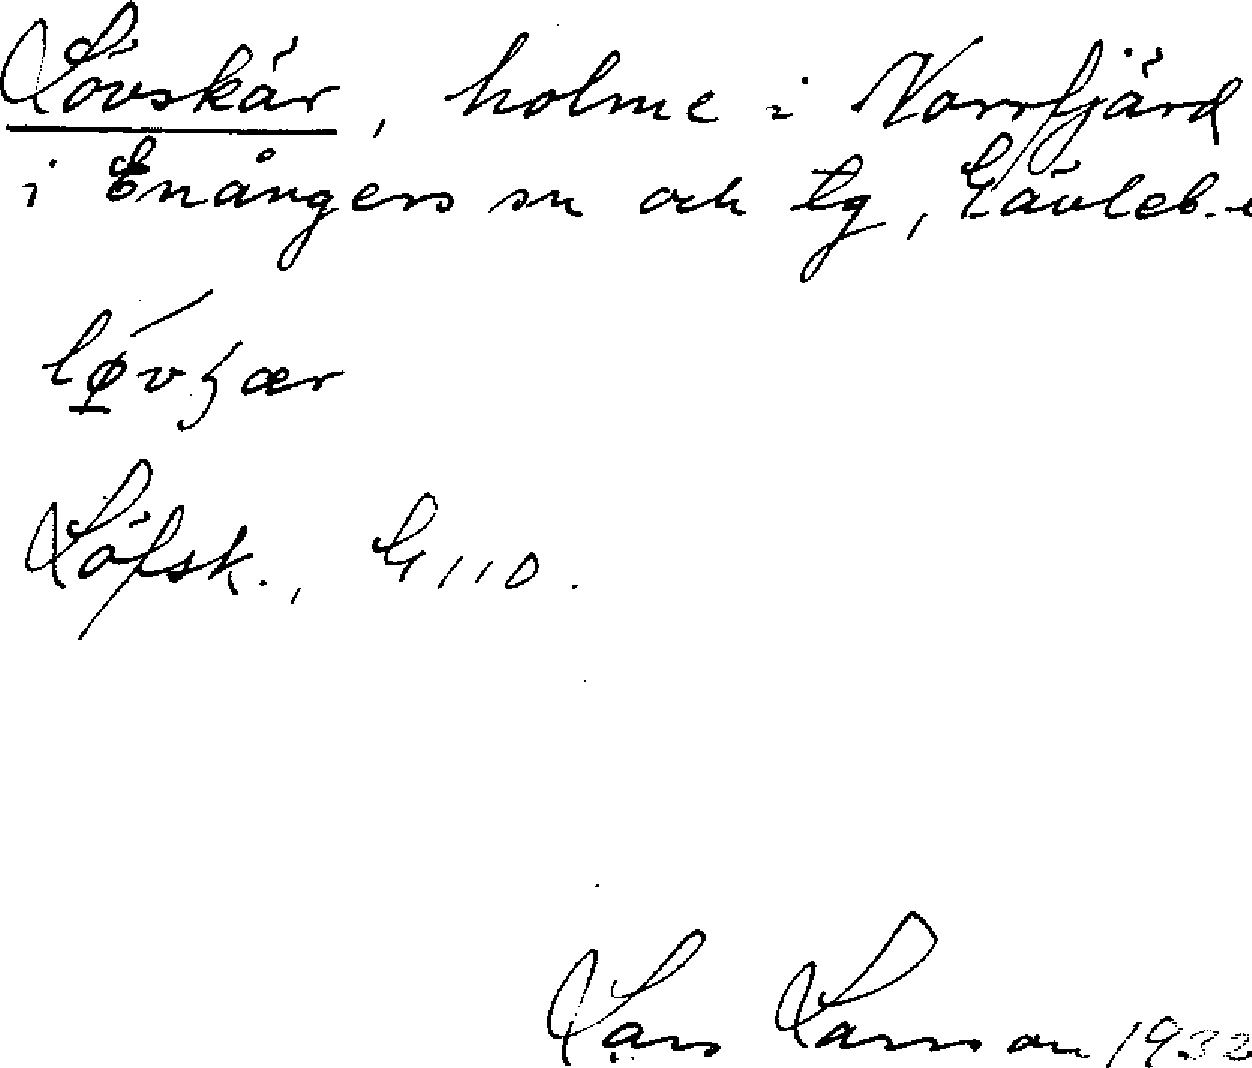 Lövskär, holme i Norrfjärd
i Enångers sn och tg, Gävleb.
Löfsk., G 110.
Lars Larsson 1932